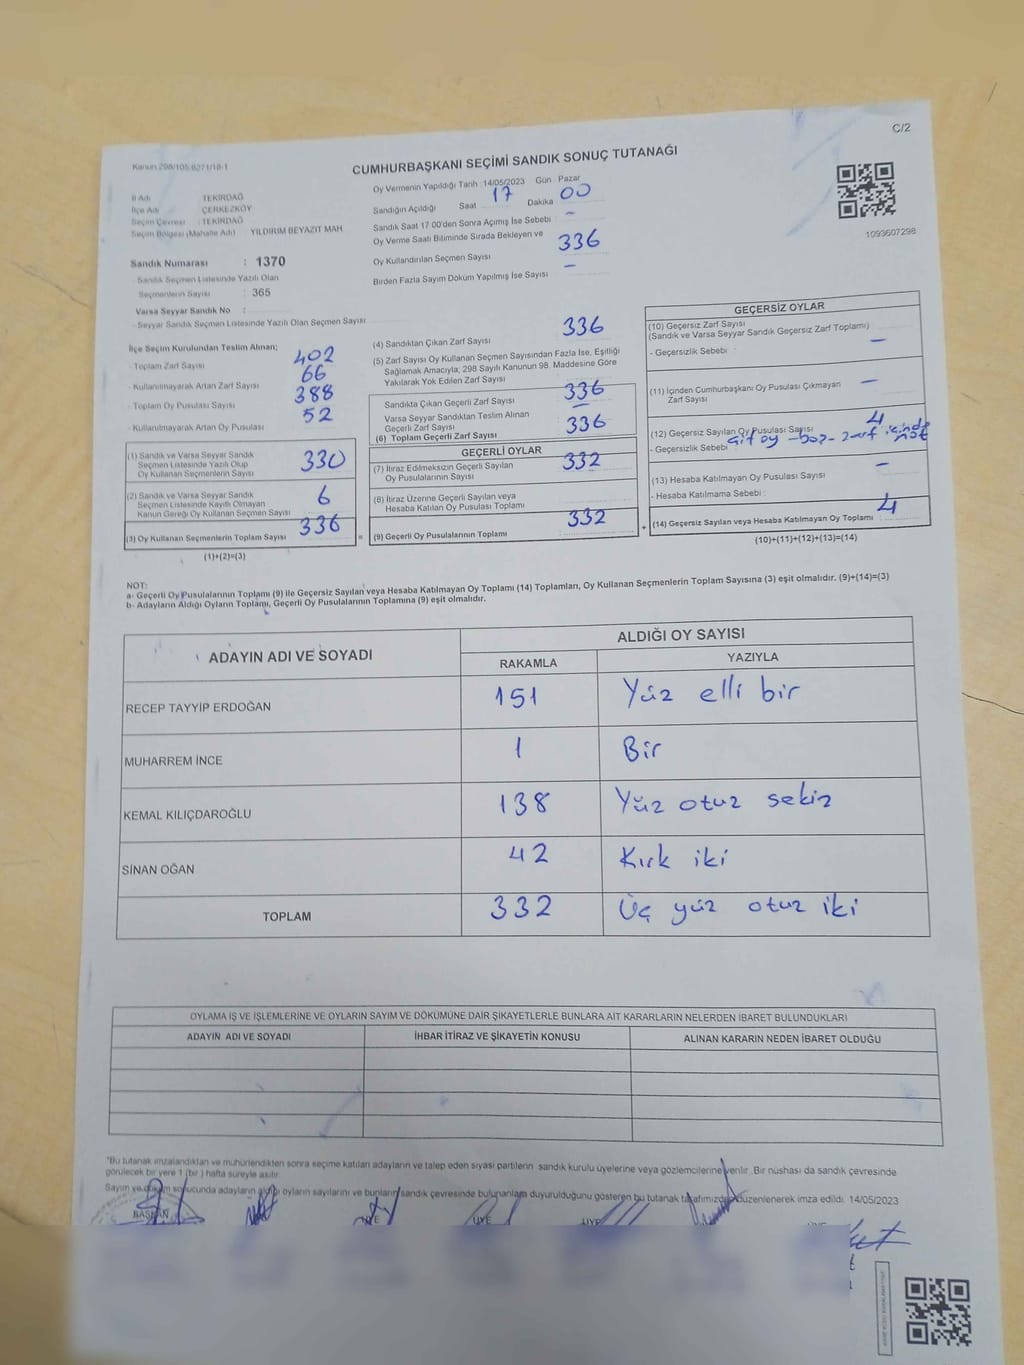 C/2
Kanun 298/105 6271/18-1
CUMHURBAŞKANI SEÇİMİ SANDIK SONUÇ TUTANAĞI
İl Adı TEKİRDAĞ
İlçe Adı : ÇERKEZKÖY
Seçim Çevresi : TEKİRDAĞ
Seçim Bölgesi (Mahalle Adı) YILDIRIM BEYAZIT MAH.
Sandık Numarası : 1370
- Sandık Seçmen Listesinde Yazılı Olan
Seçmenlerin Sayısı : 365
Varsa Seyyar Sandık No :
- Seyyar Sandık Seçmen Listesinde Yazılı Olan Seçmen Sayısı
Oy Vermenin Yapıldığı Tarih :14/05/2023 Gün : Pazar
Sandığın Açıldığı Saat 17 Dakika 00
Sandık Saat 17:00'den Sonra Açımış İse Sebebi : -
Oy Verme Saati Bitiminde Sırada Bekleyen ve
Oy Kullandırılan Seçmen Sayısı 336
Birden Fazla Sayım Döküm Yapılmış İse Sayısı -
1093607298
İlçe Seçim Kurulundan Teslim Alınan;
- Toplam Zarf Sayısı 402
- Kullanılmayarak Artan Zarf Sayısı 66
- Toplam Oy Pusulası Sayısı 388
- Kullanılmayarak Artan Oy Pusulası 52
(1) Sandık ve Varsa Seyyar Sandık
Seçmen Listesinde Yazılı Olup
Oy Kullanan Seçmenlerin Sayısı 330
(2) Sandık ve Varsa Seyyar Sandık
Seçmen Listesinde Kayıtlı Olmayan
Kanun Gereği Oy Kullanan Seçmen Sayısı 6
(3) Oy Kullanan Seçmenlerin Toplam Sayısı 336
(1)+(2)=(3)
=
(4) Sandıktan Çıkan Zarf Sayısı 336
(5) Zarf Sayısı Oy Kullanan Seçmen Sayısından Fazla İse, Eşitliği
Sağlamak Amacıyla, 298 Sayılı Kanunun 98. Maddesine Göre
Yakılarak Yok Edilen Zarf Sayısı -
Sandıkta Çıkan Geçerli Zarf Sayısı 336
Varsa Seyyar Sandıktan Teslim Alınan
Geçerli Zarf Sayısı -
(6) Toplam Geçerli Zarf Sayısı 336
GEÇERLİ OYLAR
(7) İtiraz Edilmeksizin Geçerli Sayılan
Oy Pusulalarının Sayısı 332
(8) İtiraz Üzerine Geçerli Sayılan veya
Hesaba Katılan Oy Pusulası Toplamı
(9) Geçerli Oy Pusulalarının Toplamı 332
+
GEÇERSİZ OYLAR
(10) Geçersiz Zarf Sayısı
(Sandık ve Varsa Seyyar Sandık Geçersiz Zarf Toplamı) -
- Geçersizlik Sebebi :
(11) İçinden Cumhurbaşkanı Oy Pusulası Çıkmayan
Zarf Sayısı -
(12) Geçersiz Sayılan Oy Pusulası Sayısı 4
- Geçersizlik Sebebi : çift oy - boş - zarf içinde not
(13) Hesaba Katılmayan Oy Pusulası Sayısı -
- Hesaba Katılmama Sebebi :
(14) Geçersiz Sayılan veya Hesaba Katılmayan Oy Toplamı 4
(10)+(11)+(12)+(13)=(14)
NOT:
a- Geçerli Oy Pusulalarının Toplamı (9) ile Geçersiz Sayılan veya Hesaba Katılmayan Oy Toplamı (14) Toplamları, Oy Kullanan Seçmenlerin Toplam Sayısına (3) eşit olmalıdır. (9)+(14)=(3)
b- Adayların Aldığı Oyların Toplamı, Geçerli Oy Pusulalarının Toplamına (9) eşit olmalıdır.
ADAYIN ADI VE SOYADI ALDIĞI OY SAYISI
RAKAMLA YAZIYLA
RECEP TAYYİP ERDOĞAN 151 Yüz elli bir
MUHARREM İNCE 1 Bir
KEMAL KILIÇDAROĞLU 138 Yüz otuz sekiz
SİNAN OĞAN 42 Kırk iki
TOPLAM 332 Üç yüz otuz iki
OYLAMA İŞ VE İŞLEMLERİNE VE OYLARIN SAYIM VE DÖKÜMÜNE DAİR ŞİKAYETLERLE BUNLARA AİT KARARLARIN NELERDEN İBARET BULUNDUKLARI
ADAYIN ADI VE SOYADI İHBAR İTİRAZ VE ŞİKAYETİN KONUSU ALINAN KARARIN NEDEN İBARET OLDUĞU
*Bu tutanak imzalandıktan ve mühürlendikten sonra seçime katılan adayların ve talep eden siyasi partilerin sandık kurulu üyelerine veya gözlemcilerine verilir. Bir nüshası da sandık çevresinde
görülecek bir yere 1 (bir) hafta süreyle asılır.
Sayım ve döküm sonucunda adayların aldığı oyların sayılarını ve bunların sandık çevresinde bulunanlara duyurulduğunu gösteren bu tutanak tarafımızdan düzenlenerek imza edildi. 14/05/2023
BAŞKAN ÜYE ÜYE ÜYE